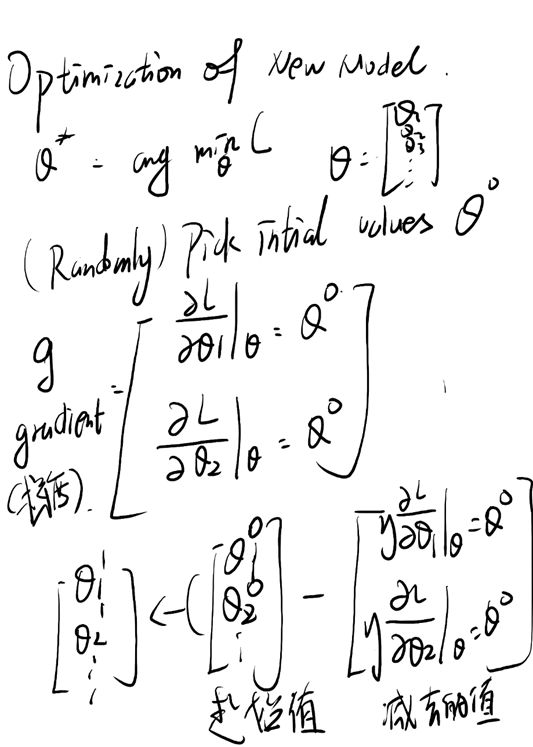 Optimization of New Model.
θ* = arg min_θ L θ = [θ1 θ2 θ3 ⋮]
(Randomly) Pick intial values θ^0
g = [∂L/∂θ1|θ = θ^0
gradient ∂L/∂θ2|θ = θ^0]
[θ1^1 θ2^1 ⋮] ← ([θ1^0 θ2^0 ⋮] - [η ∂L/∂θ1|θ=θ^0 η ∂L/∂θ2|θ=θ^0]
起始值 减去的值